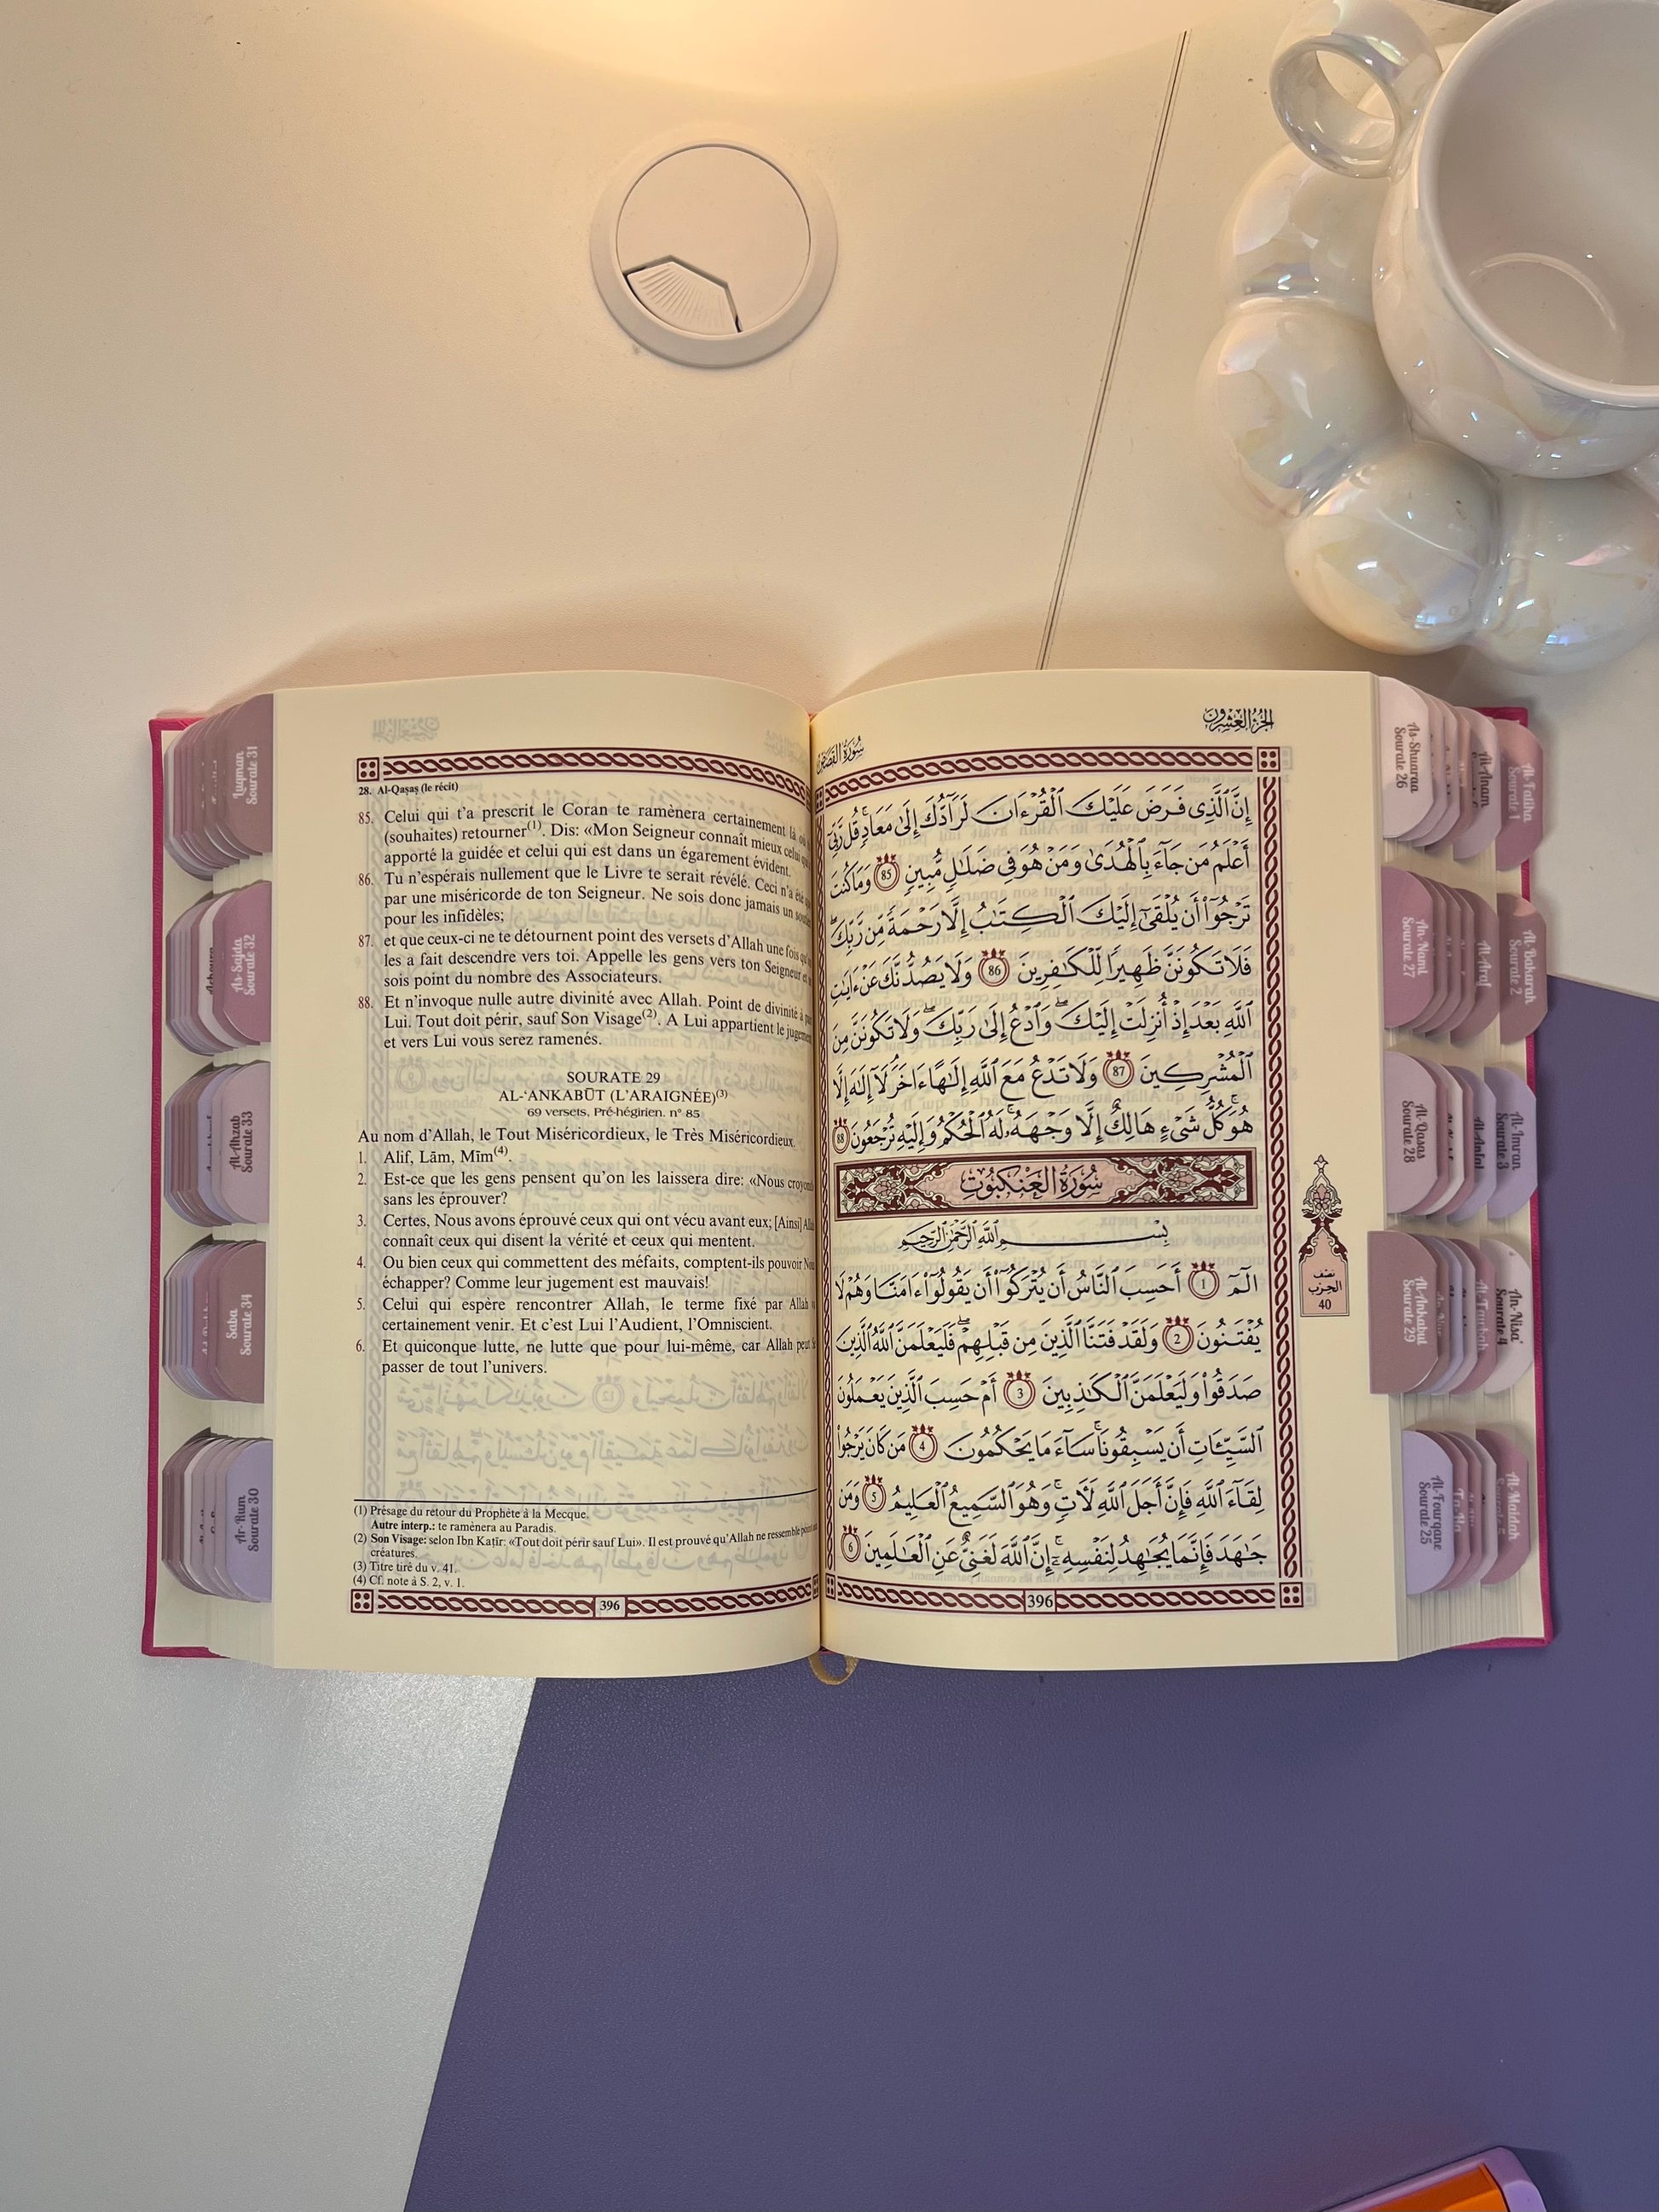 28. Al-Qaṣaṣ (le récit)
85. Celui qui t'a prescrit le Coran te ramènera certainement là
(souhaites) retourner(1). Dis: «Mon Seigneur connaît mieux celui
apporté la guidée et celui qui est dans un égarement évident.
86. Tu n'espérais nullement que le Livre te serait révélé. Ceci n'a été
par une miséricorde de ton Seigneur. Ne sois donc jamais un
pour les infidèles;
87. et que ceux-ci ne te détournent point des versets d'Allah une fois
les a fait descendre vers toi. Appelle les gens vers ton Seigneur et
sois point du nombre des Associateurs.
88. Et n'invoque nulle autre divinité avec Allah. Point de divinité à
Lui. Tout doit périr, sauf Son Visage(2). A Lui appartient le
et vers Lui vous serez ramenés.
SOURATE 29
AL-'ANKABŪT (L'ARAIGNÉE)(3)
69 versets, Pré-hégirien. n° 85
Au nom d'Allah, le Tout Miséricordieux, le Très Miséricordieux.
1. Alif, Lām, Mīm(4).
2. Est-ce que les gens pensent qu'on les laissera dire: «Nous
sans les éprouver?
3. Certes, Nous avons éprouvé ceux qui ont vécu avant eux; [Ainsi]
connaît ceux qui disent la vérité et ceux qui mentent.
4. Ou bien ceux qui commettent des méfaits, comptent-ils pouvoir
échapper? Comme leur jugement est mauvais!
5. Celui qui espère rencontrer Allah, le terme fixé par Allah
certainement venir. Et c'est Lui l'Audient, l'Omniscient.
6. Et quiconque lutte, ne lutte que pour lui-même, car Allah peut
passer de tout l'univers.
(1) Présage du retour du Prophète à la Mecque.
Autre interp.: te ramènera au Paradis.
(2) Son Visage: selon Ibn Kaṯīr: «Tout doit périr sauf Lui». Il est prouvé qu'Allah ne ressemble
créatures.
(3) Titre tiré du v. 41.
(4) Cf. note à S. 2, v. 1.
396
الجزء العشرون
سورة القصص
إِنَّ ٱلَّذِى فَرَضَ عَلَيْكَ ٱلْقُرْءَانَ لَرَآدُّكَ إِلَىٰ مَعَادٍ ۚ قُل رَّبِّىٓ
أَعْلَمُ مَن جَآءَ بِٱلْهُدَىٰ وَمَنْ هُوَ فِى ضَلَٰلٍ مُّبِينٍ 85 وَمَا كُنتَ
تَرْجُوٓا۟ أَن يُلْقَىٰٓ إِلَيْكَ ٱلْكِتَٰبُ إِلَّا رَحْمَةً مِّن رَّبِّكَ ۖ
فَلَا تَكُونَنَّ ظَهِيرًا لِّلْكَٰفِرِينَ 86 وَلَا يَصُدُّنَّكَ عَنْ ءَايَٰتِ
ٱللَّهِ بَعْدَ إِذْ أُنزِلَتْ إِلَيْكَ ۖ وَٱدْعُ إِلَىٰ رَبِّكَ ۖ وَلَا تَكُونَنَّ مِنَ
ٱلْمُشْرِكِينَ 87 وَلَا تَدْعُ مَعَ ٱللَّهِ إِلَٰهًا ءَاخَرَ ۘ لَآ إِلَٰهَ إِلَّا
هُوَ ۚ كُلُّ شَىْءٍ هَالِكٌ إِلَّا وَجْهَهُۥ ۚ لَهُ ٱلْحُكْمُ وَإِلَيْهِ تُرْجَعُونَ 88
سورة العنكبوت
بِسْمِ ٱللَّهِ ٱلرَّحْمَٰنِ ٱلرَّحِيمِ
الٓمٓ 1 أَحَسِبَ ٱلنَّاسُ أَن يُتْرَكُوٓا۟ أَن يَقُولُوٓا۟ ءَامَنَّا وَهُمْ لَا
يُفْتَنُونَ 2 وَلَقَدْ فَتَنَّا ٱلَّذِينَ مِن قَبْلِهِمْ ۖ فَلَيَعْلَمَنَّ ٱللَّهُ ٱلَّذِينَ
صَدَقُوا۟ وَلَيَعْلَمَنَّ ٱلْكَٰذِبِينَ 3 أَمْ حَسِبَ ٱلَّذِينَ يَعْمَلُونَ
ٱلسَّيِّـَٔاتِ أَن يَسْبِقُونَا ۚ سَآءَ مَا يَحْكُمُونَ 4 مَن كَانَ يَرْجُوا۟
لِقَآءَ ٱللَّهِ فَإِنَّ أَجَلَ ٱللَّهِ لَءَاتٍ ۚ وَهُوَ ٱلسَّمِيعُ ٱلْعَلِيمُ 5 وَمَن
جَٰهَدَ فَإِنَّمَا يُجَٰهِدُ لِنَفْسِهِۦٓ ۚ إِنَّ ٱللَّهَ لَغَنِىٌّ عَنِ ٱلْعَٰلَمِينَ 6
396
نصف
الحزب
40
Luqman
Sourate 31
As-Sajda
Sourate 32
Al-Ahzab
Sourate 33
Saba
Sourate 34
Ar-Rum
Sourate 30
As-Shuaraa
Sourate 26
Al-Anam
Al-Fatiha
Sourate 1
An-Naml
Sourate 27
Al-Araf
Al-Bakarah
Sourate 2
Al-Qasas
Sourate 28
Al-Anfal
Al-Imran
Sourate 3
Al-Ankabut
Sourate 29
At-Tawbah
An-Nisa'
Sourate 4
Al-Fourqane
Sourate 25
Al-Maidah